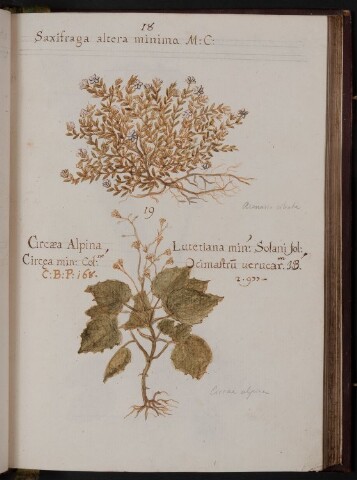 18
Saxifraga altera minima M: C:
19
Circæa Alpina
Circæa min: Col:
C: B: P: 168.
Lutetiana min: Solani fol:
Ocimastrũ verucar: IB.
2.977.
Circaea alpina